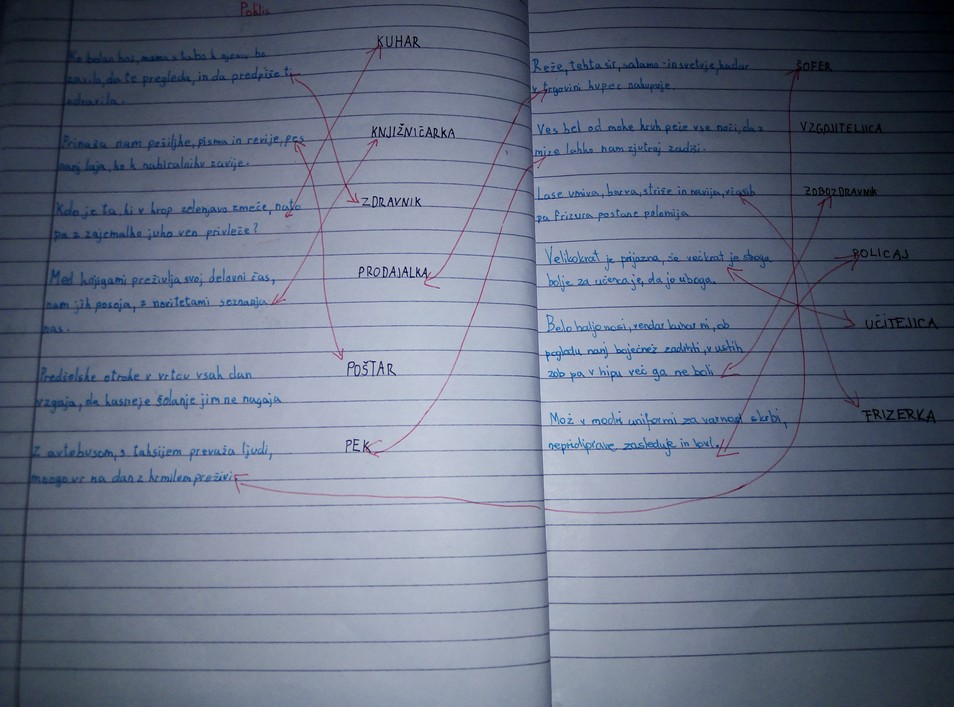 Poklic
Ko bolan boš, mama s tabo k njemu bo
zavila, da te pregleda, in da predpiše ti
zdravila.
Prinaša nam pošiljke, pisma in revije, pes
nanj laja, ko k nabiralniku zavije.
Kdo je ta, ki v krop zelenjavo zmeče, nato
pa z zajemalko juho ven privleče?
Med knjigami preživlja svoj delovni čas,
nam jih posoja, z novitetami seznanja
nas.
Predšolske otroke v vrtcu vsak dan
vzgaja, da kasneje šolanje jim ne nagaja
Z avtobusom, s taksijem prevaža ljudi,
mnogo ur na dan z krmilom preživi.
KUHAR
KNJIŽNIČARKA
ZDRAVNIK
PRODAJALKA
POŠTAR
PEK
Reže, tehta sir, salamo in svetuje, kadar
v trgovini kupec nakupuje.
Ves bel od moke kruh peče vse noči, da z
mize lahko nam zjutraj zadiši.
Lase umiva, barva, striže in navija, včasih
pa frizura postane polomija
Velikokrat je prijazna, še večkrat je stroga
bolje za učenca je, da jo uboga.
Belo haljo nosi, vendar kuhar ni, ob
pogledu nanj bojećnež zadrhti, v ustih
zob pa v hipu več ga ne boli.
Mož v modri uniformi za varnost skrbi,
nepridiprave zasleduje in lovi.
ŠOFER
VZGOJITELJICA
ZOBOZDRAVNIK
POLICAJ
UČITELJICA
FRIZERKA